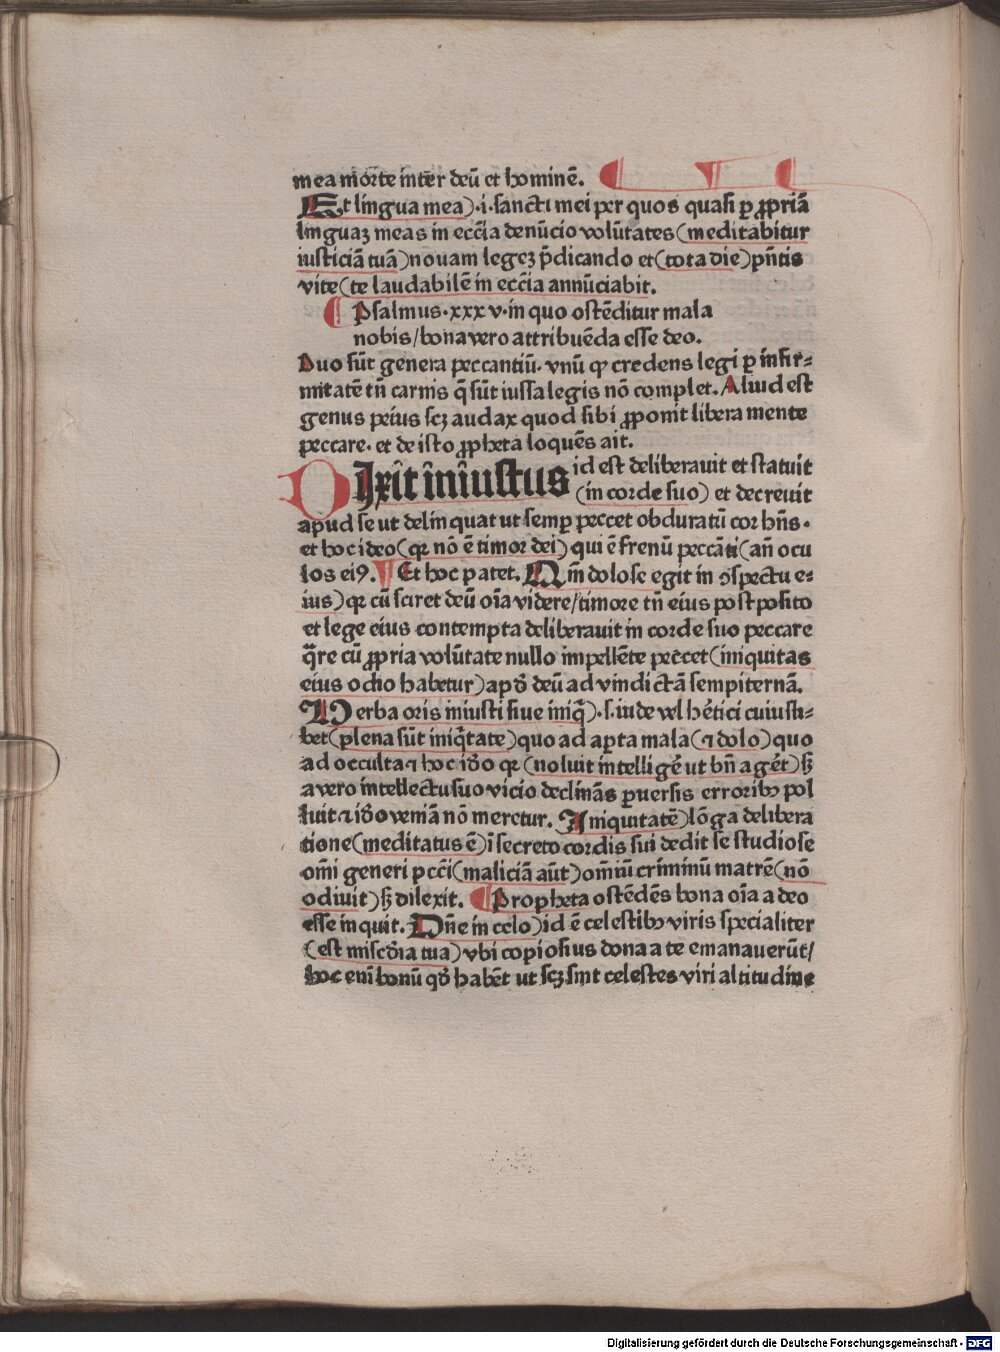 mea mőrte inter deū et hominē.
Et lingua mea)·i·sancti mei per quos quasi ꝑ ꝓpriā
linguaꝫ meas in ecc̄ia denūcio volūtates(meditabitur
iusticiā tuā)nouam legeꝫ p̄dicando et(tota die)pn̄tis
vite(te laudabilē in ecc̄ia annūciabit.
Psalmus·xxxv·in quo ostēditur mala
nobis/bona vero attribuēda esse deo.
Duo sūt genera peccantiū· vnū qꝫ credens legi ꝑ infir⸗
mitatē tn̄ carnis q̄ sūt iussa legis nō complet. Aliud est
genus peius scꝫ audax quod sibi ꝓponit libera mente
peccare· et de isto ꝓpheta loquēs ait.
DIxit iniustus id est deliberauit et statuit
(in corde suo) et decreuit
apud se ut delinquat ut semꝑ peccet obduratū cor hn̄s·
et hoc ideo(qꝛ nō ē timor dei) qui ē frenū peccāti(an̄ ocu
los eiꝰ. Et hoc patet. Qm̄ dolose egit in ꝯspectu e⸗
ius)qꝛ cū sciret deū oīa videre/timore tn̄ eius postposito
et lege eius contempta deliberauit in corde suo peccare
q̄re cū ꝓpria volūtate nullo impellēte peccet(iniquitas
eius odio habetur)apd̄ deū ad vindictā sempiternā.
Verba oris iniusti siue iniq̄)·s·iude vel hētici cuiusli⸗
bet(plena sūt iniq̄tate)quo ad aꝑta mala(⁊ dolo)quo
ad occulta ⁊ hoc iđo qꝛ (noluit intelligē ut bn̄ agēt)sꝫ
a vero intellectu suo vicio declinās ꝑuersis erroribꝫ pol
luit ⁊ iđo veniā nō meretur. Iniquitatē)lōga delibera
tione(meditatus ē)ī secreto cordis sui dedit se studiose
om̄i generi pcc̄i(maliciā aūt)om̄iū criminū matrē(nō
odiuit)sꝫ dilexit. Propheta ostēdēs bona oīa a deo
esse inquit. Dn̄e in celo)id ē celestibꝫ viris specialiter
(est misc̄đia tua)vbi copiosius dona a te emanauerūt/
hoc eni̅ bonū qđ habēt ut scꝫ sint celestes viri altitudine
Digitalisierung gefördert durch die Deutsche Forschungsgemeinschaft - DFG